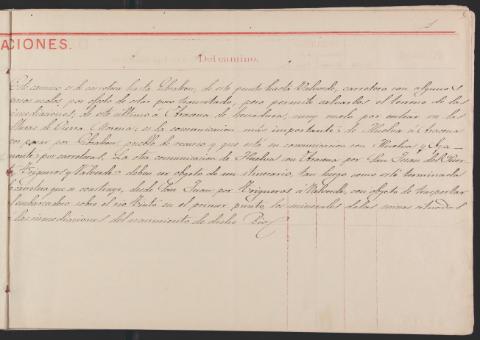 1
ACIONES.
Del camino.
Este camino es de carretera hasta Gibraleon, de este punto hasta Valverde, carretera con algunos
pasos malos, por efecto de estar poco terminada, pero permite salvarlos el terreno de las
inmediaciones; de este último a Aracena de herradura, muy malo por entrar en las
Sierra Morena; es la comunicacion más importante de Huelva a Aracena
por pasar por Gibraleon, pueblo de recursos y que está en comunicacion con Huelva y Aya-
monte por carreteras. La otra comunicacion de Huelva con Aracena por San Juan del Puerto,
Trigueros y Valverde deben ser objeto de un itinerario, tan luego como esté terminada
la carretera que se construye, desde San Juan por Trigueros a Valverde, con objeto de transportar
al embarcadero sobre el rio Tinto en el primer punto los minerales de las minas situadas
a las inmediaciones del nacimiento de dicho Rio